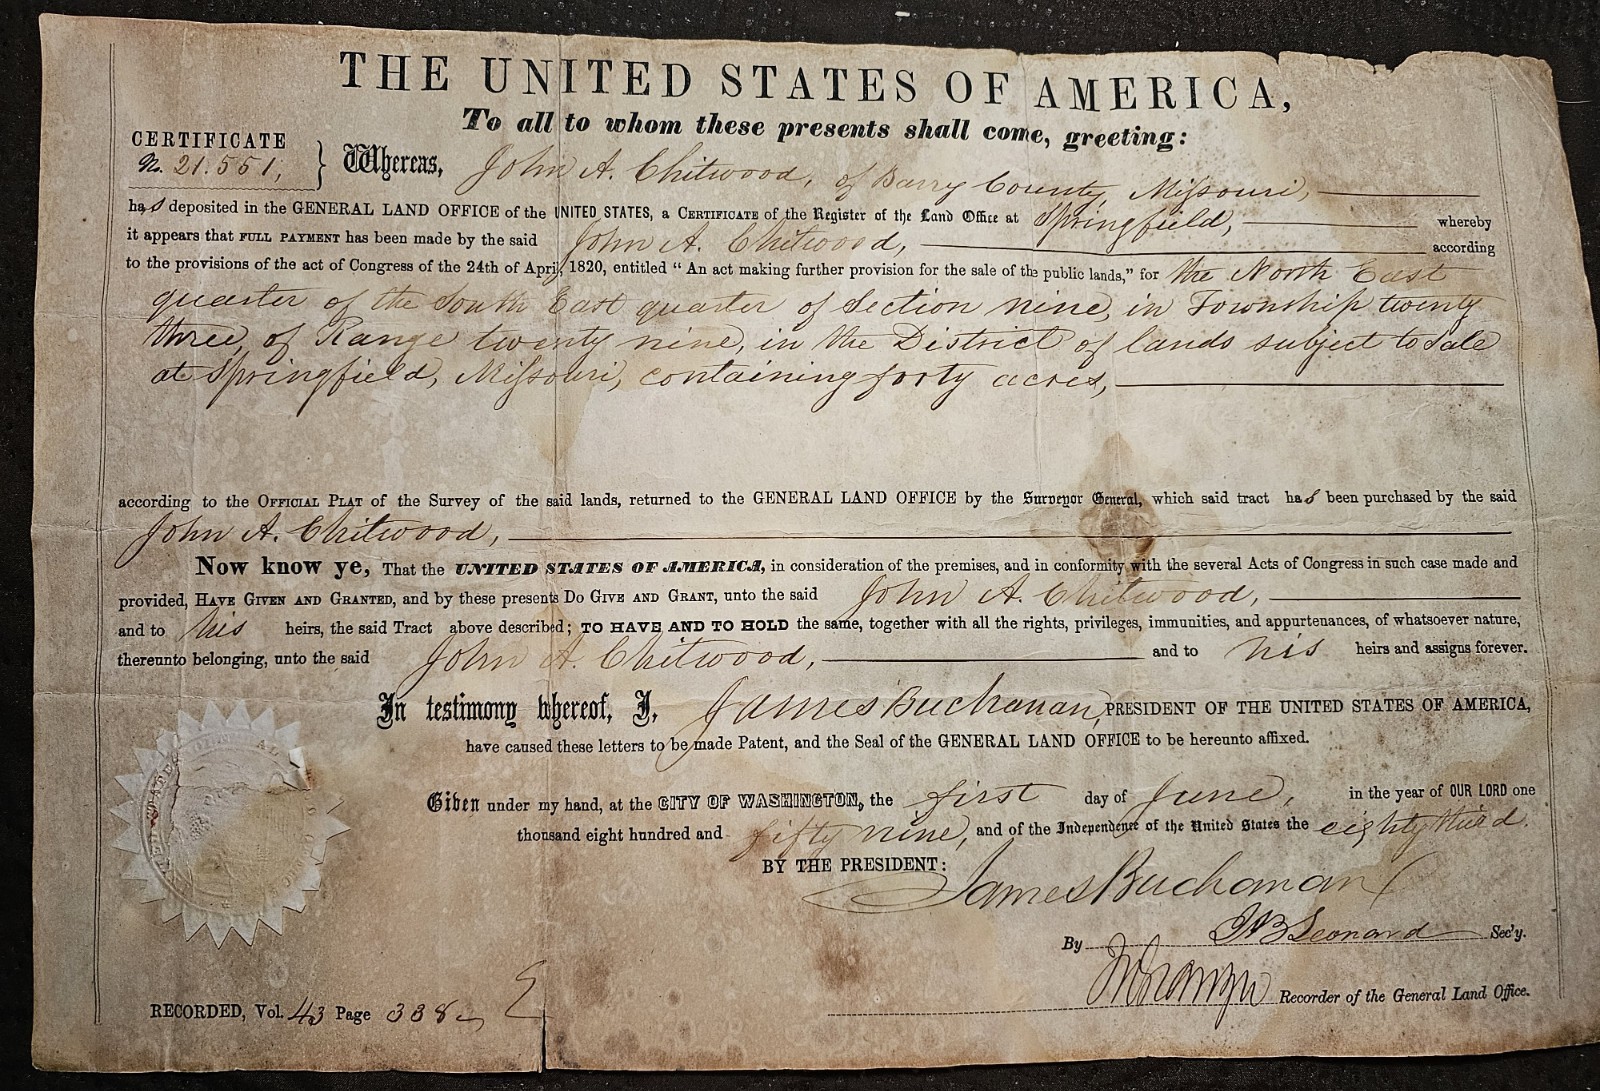 THE UNITED STATES OF AMERICA,
To all to whom these presents shall come, greeting:
CERTIFICATE
No. 21.551,
Whereas, John A. Chitwood, of Barry County, Missouri,
has deposited in the GENERAL LAND OFFICE of the UNITED STATES, a CERTIFICATE of the Register of the Land Office at Springfield, whereby
it appears that FULL PAYMENT has been made by the said John A. Chitwood, according
to the provisions of the act of Congress of the 24th of April, 1820, entitled "An act making further provision for the sale of the public lands," for the North East
quarter of the South East quarter of Section nine, in Township twenty
three, of Range twenty nine, in the District of lands subject to Sale
at Springfield, Missouri, containing forty acres,
according to the OFFICIAL PLAT of the Survey of the said lands, returned to the GENERAL LAND OFFICE by the Surveyor General, which said tract has been purchased by the said
John A. Chitwood,
Now know ye, That the UNITED STATES OF AMERICA, in consideration of the premises, and in conformity with the several Acts of Congress in such case made and
provided, HAVE GIVEN AND GRANTED, and by these presents DO GIVE AND GRANT, unto the said John A. Chitwood,
and to his heirs, the said Tract above described; TO HAVE AND TO HOLD the same, together with all the rights, privileges, immunities, and appurtenances, of whatsoever nature,
thereunto belonging, unto the said John A. Chitwood, and to his heirs and assigns forever.
In testimony whereof, I, James Buchanan, PRESIDENT OF THE UNITED STATES OF AMERICA,
have caused these letters to be made Patent, and the Seal of the GENERAL LAND OFFICE to be hereunto affixed.
Given under my hand, at the CITY OF WASHINGTON, the first day of June, in the year of OUR LORD one
thousand eight hundred and fifty nine, and of the Independence of the United States the eighty third.
BY THE PRESIDENT: James Buchanan
By J B Leonard Sec'y.
Recorder of the General Land Office.
RECORDED, Vol. 43 Page 338